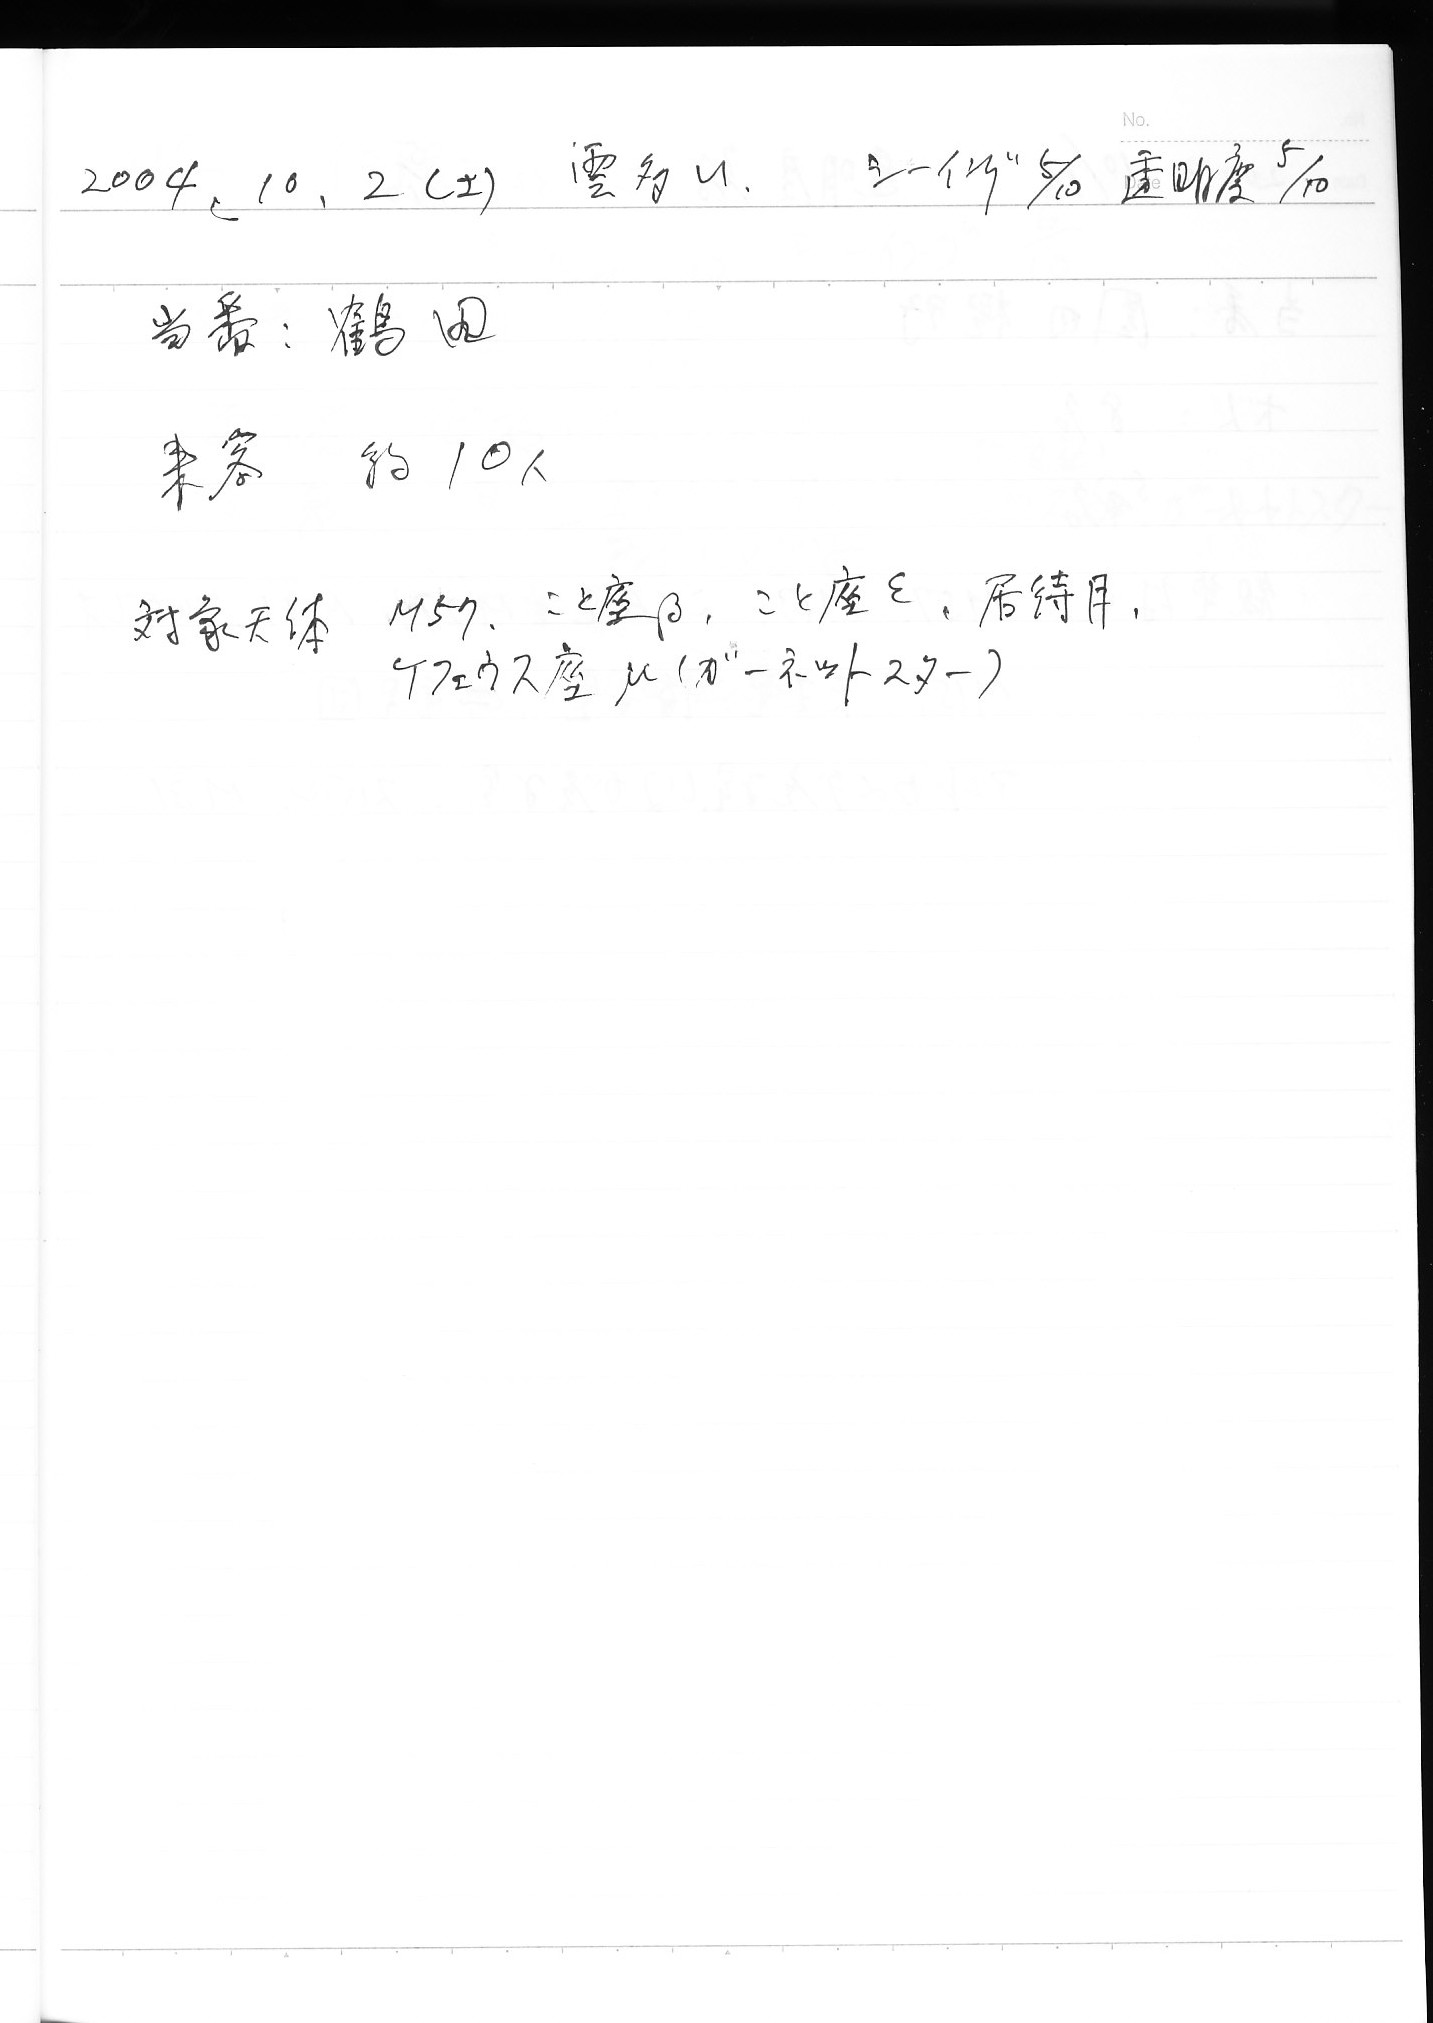 No.
2004、10、2(土) 雲多い. シーイング 5/10 透明度 5/10
当番: 鶴田
来客 約10人
対象天体 M57、こと座β、こと座ε、居待月、
ケフェウス座μ(ガーネットスター)